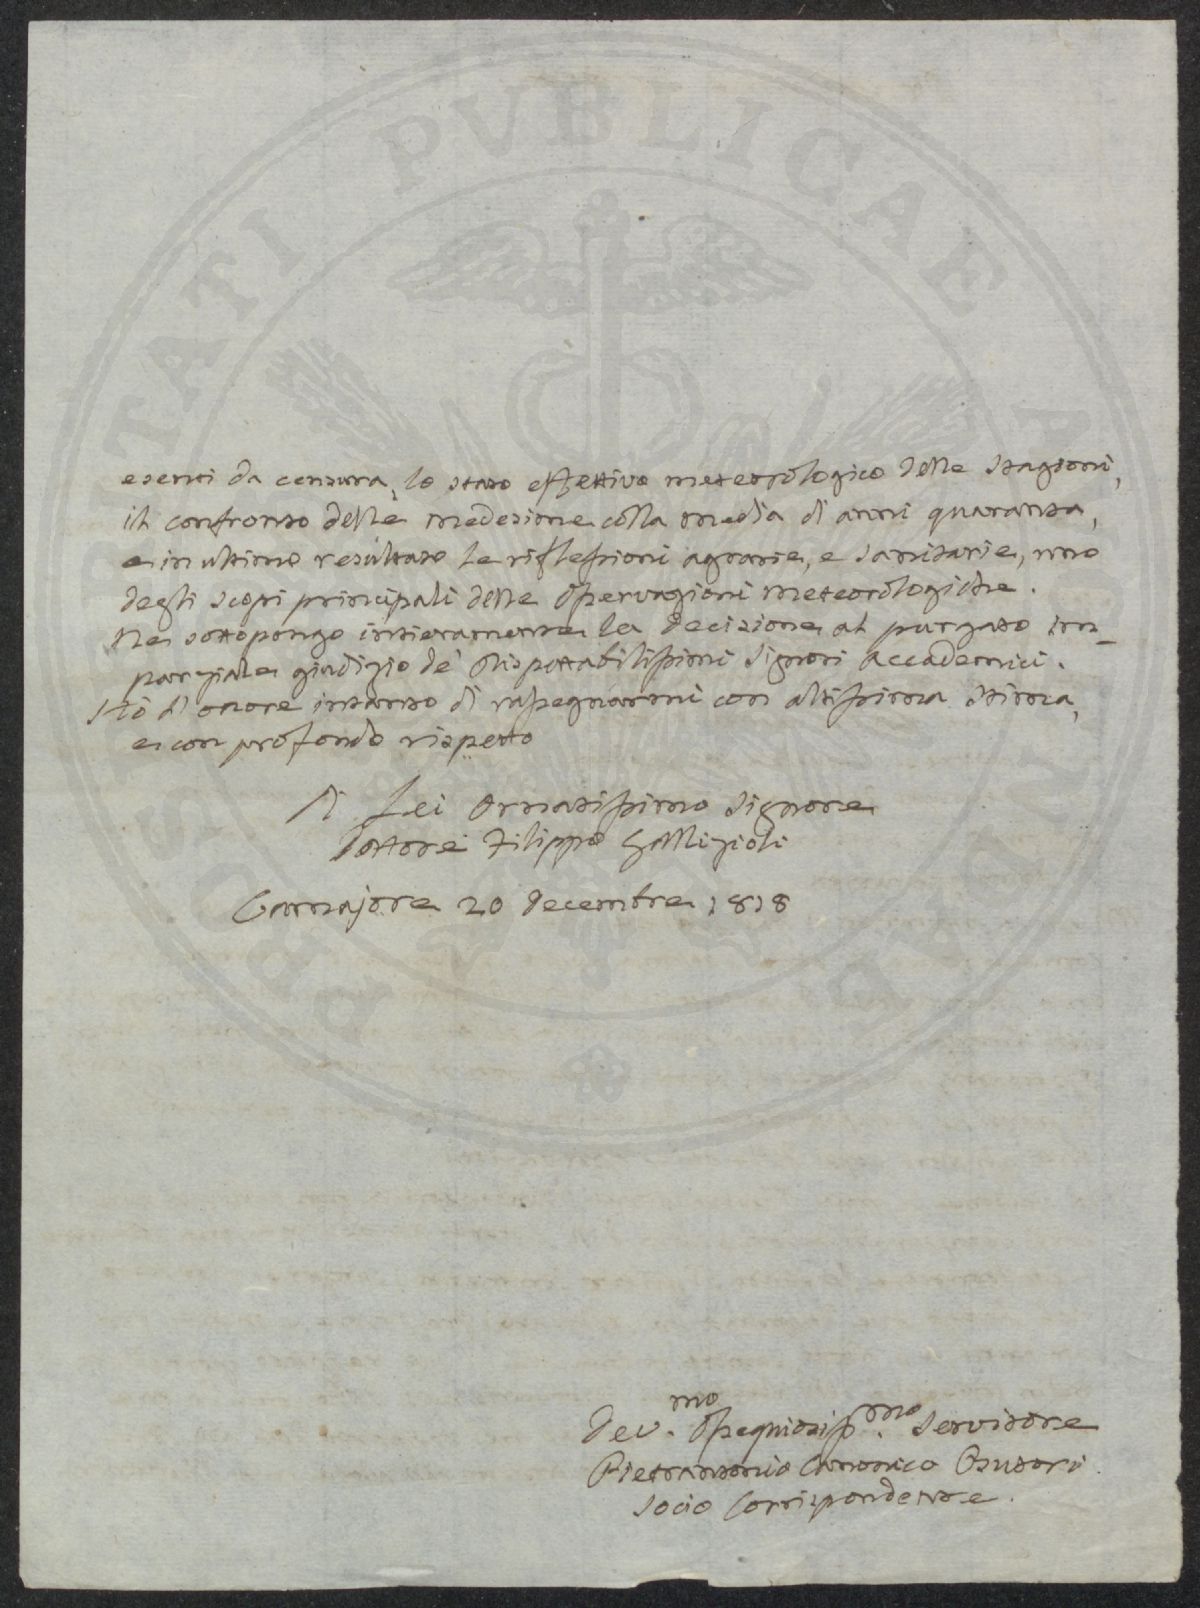 PROSPERITATI PUBLICAE AUGENDAE
esenti da censura, lo stato effettivo meteorologico delle stagioni,
il confronto delle medesime colla media di anni quaranta,
e in ultimo resultato le riflessioni agrarie, e sanitarie, uno
degli scopi principali delle osservazioni meteorologiche.
Ne sottopongo intieramente la decisione al purgato im-
parziale giudizio de' rispettabilissimi Signori Accademici.
Hò l'onore intanto di rassegnarmi con altissima stima,
e con profondo rispetto
Di Lei Ornatissimo Signore
Dottore Filippo Gallizioli
Camajore 20 decembre 1818
Dev.mo Ossequiosiss.mo Servitore
Pietrantonio Canonico Butori
Socio Corrispondente.